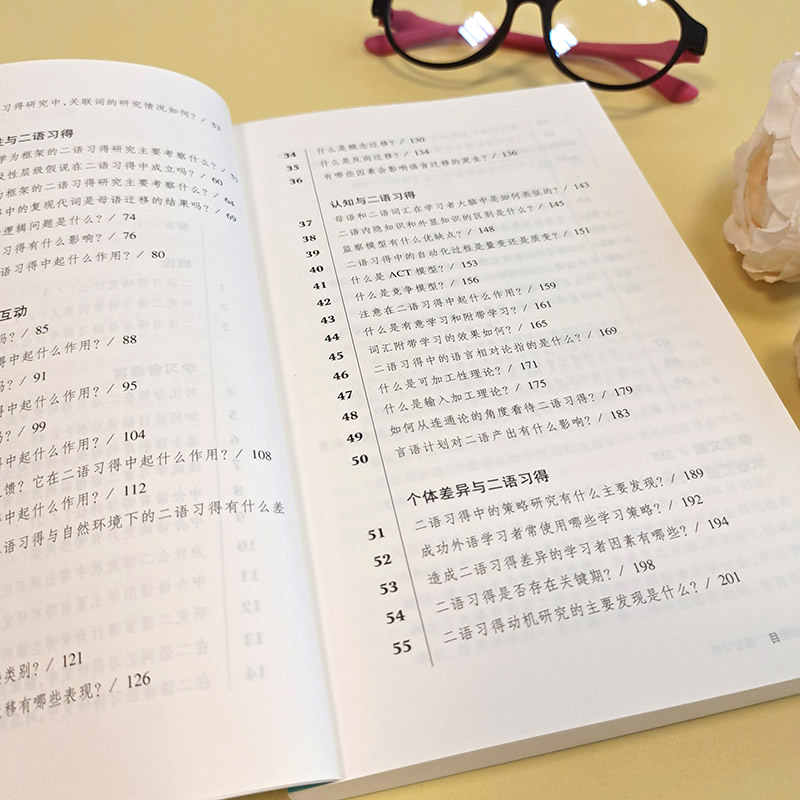 习得研究中,关联词的研究情况如何? / 53
性与二语习得
学为框架的二语习得研究主要考察什么? / 57
及性层级假说在二语习得中成立吗? / 60
为框架的二语习得研究主要考察什么? / 64
得中的复现代词是母语迁移的结果吗? / 69
逻辑问题是什么? / 74
习得有什么影响? / 76
语习得中起什么作用? / 80
互动
吗? / 85
得中起什么作用? / 88
吗? / 91
得中起什么作用? / 95
吗? / 99
得中起什么作用? / 104
馈? 它在二语习得中起什么作用? / 108
得中起什么作用? / 112
语习得与自然环境下的二语习得有什么差
类别? / 121
移有哪些表现? / 126
34 什么是概念迁移? / 130
35 什么是反向迁移? / 134
36 有哪些因素会影响语言迁移的发生? / 136
认知与二语习得
37 母语和二语词汇在学习者大脑中是如何表征的? / 143
38 二语内隐知识和外显知识的区别是什么? / 145
39 监察模型有什么优缺点? / 148
40 二语习得中的自动化过程是量变还是质变? / 151
41 什么是 ACT 模型? / 153
42 什么是竞争模型? / 156
43 注意在二语习得中起什么作用? / 159
44 什么是有意学习和附带学习? / 161
45 词汇附带学习的效果如何? / 165
46 二语习得中的语言相对论指的是什么? / 169
47 什么是可加工性理论? / 171
48 什么是输入加工理论? / 175
49 如何从连通论的角度看待二语习得? / 179
50 言语计划对二语产出有什么影响? / 183
个体差异与二语习得
51 二语习得中的策略研究有什么主要发现? / 189
52 成功外语学习者常使用哪些学习策略? / 192
53 造成二语习得差异的学习者因素有哪些? / 194
54 二语习得是否存在关键期? / 198
55 二语习得动机研究的主要发现是什么? / 201
目